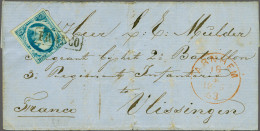 den Heer L. E. Mulder
Sergeant by het 2e Bataillon
3e Regiment Infanterie
Franco
te Vlissingen
FRANCO